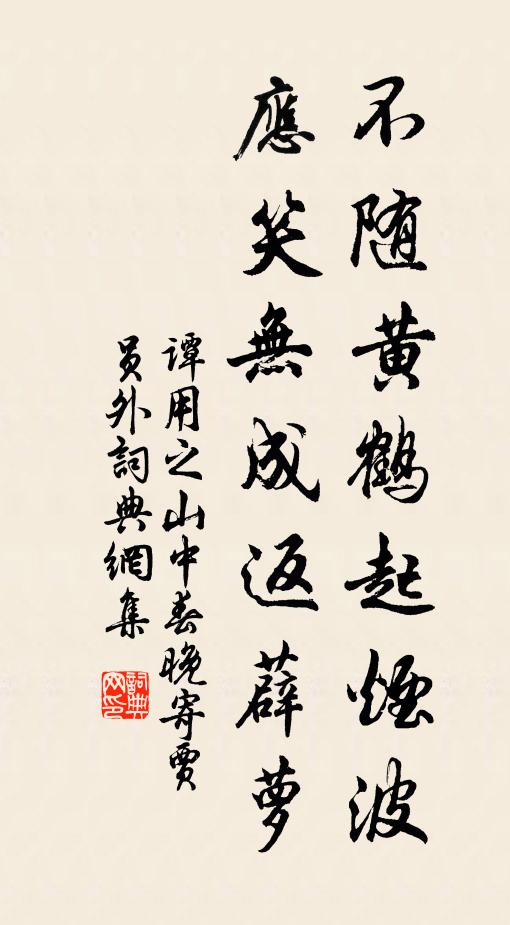 不随黄鶴起煙波
應笑無成返薜萝
譚用之山中春晚寄賈
員外詞典網集
詞典
网印